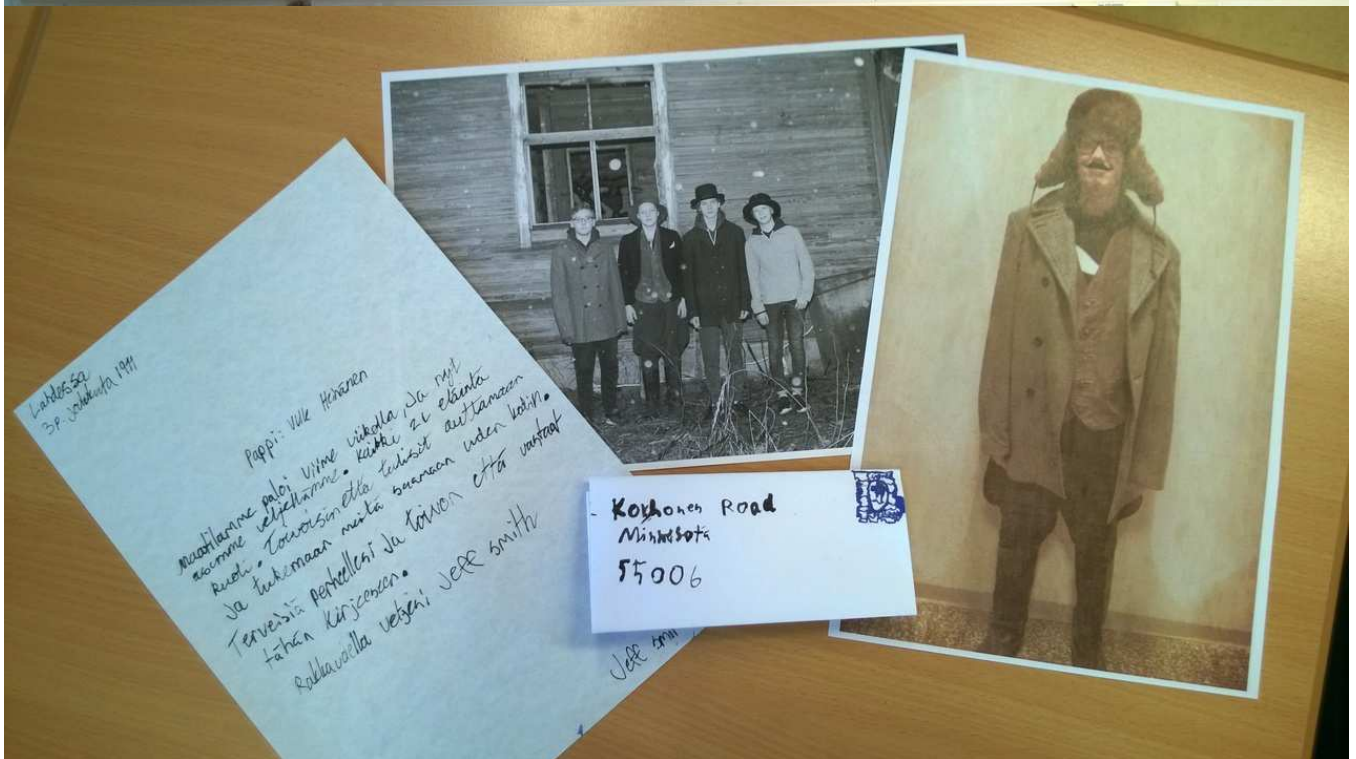 Lahdessa
3p. joulukuuta 1911
Pappi: Ville Heinänen
maatilamme paloi viime viikolla, Ja nyt
asumme veljellämme. Kaikki 26 eläintä
kuoli. Toivoisin että tulisit auttamaan
Ja tukemaan meitä saamaan uden kotin.
Terveisiä perheellesi Ja toivon että vastaat
tähän kirjeeseen.
Rakkaudella veljeni Jeff smith
Jeff smi
Korhonen Road
Minnesota
55006